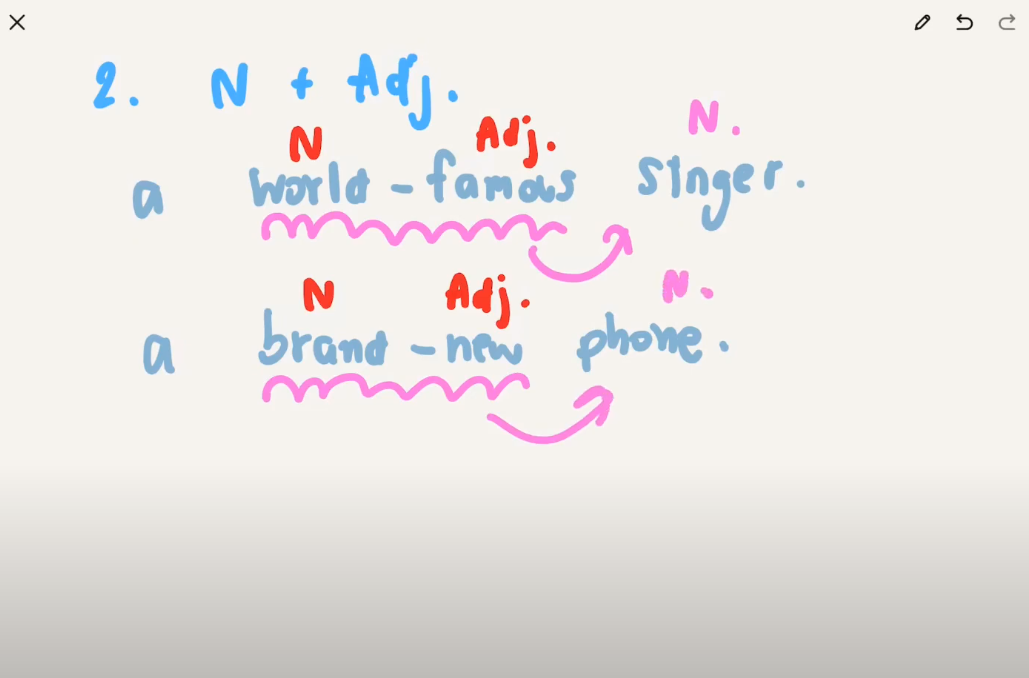 2. N + Adj.
N Adj. N.
a world-famous singer.
N Adj. N.
a brand-new phone.